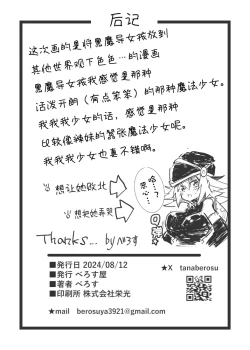 后记
这次画的是将黑魔导女孩放到
其他世界观下色色…的漫画
黑魔导女孩我感觉是那种
活泼开朗（有点笨笨）的那种魔法少女。
我我我少女的话，感觉是那种
比较像辣妹的嚣张魔法少女呢。
我我我少女也真不错啊。
想让她败北
想把她弄哭
哈…?
恶心…
Thanks... by べろす
■発行日 2024/08/12
■発行 べろす屋
■著者 べろす
■印刷所 株式会社栄光
★X tanaberosu
★mail berosuya3921@gmail.com